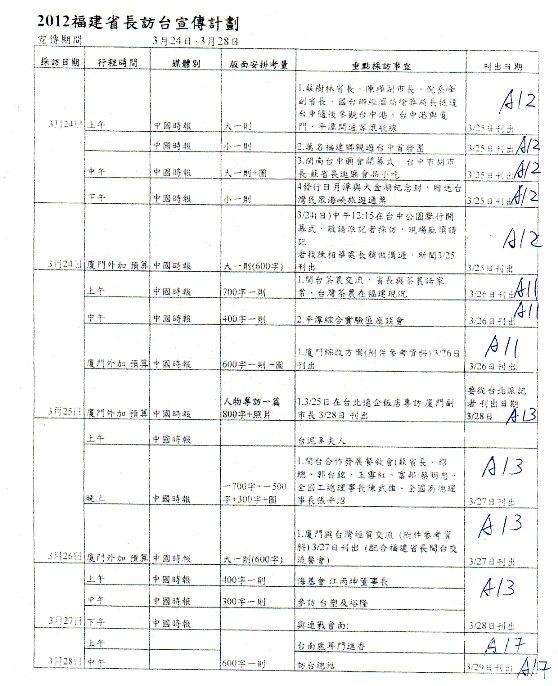 2012福建省長訪台宣傳計劃
宣傳期間 3月24日-3月28日
採訪日期 行程時間 媒體別 版面安排考量 重點採訪事宜 刊出日期
1.蘇樹林省長、陳樺副市長、倪岳峰
副省長、國台辦經濟局徐莽局長抵達
台中隨後參觀台中港。台中港與廈
門、平潭開通客滾航線
3月24日 上午 中國時報 大一則 3/25日刊出 A12
中國時報 小一則 2.萬名福建鄉親遊台中首發團 3/25日刊出 A12
中午 中國時報 大一則+圖 3.閩南台中廟會開幕式 台中市胡市
長 蘇省長逛廟會品小吃 3/25日刊出 A12
下午 中國時報 小一則 4發行日月潭與大金湖紀念封,贈送台
灣民眾海峽旅遊通票 3/25日刊出 A12
3/24(日)中午12:15在台中公園舉行開
幕式,敬請派記者採訪,現場敬請請
記
者找陳相華處長稍做溝通,新聞3/25
3月24日 廈門外加 預算 中國時報 大一則(600字) 刊出 3/25日刊出 A12
上午 中國時報 700字一則 1.閩台茶農交流,省長與茶農話家
常,台灣茶農在福建現況 3/26日刊出 A11
中午 中國時報 400字一則 2.平潭綜合實驗區座談會 3/26日刊出 A11
廈門外加 預算 中國時報 600字一則+圖 1.廈門綜改方案(附件參考資料) 3/26日
刊出 3/26日刊出 A11
3月25日 廈門外加 預算 中國時報 人物專訪一篇
800字+照片 1.3/25日在台北遠企飯店專訪 廈門副
市長 3/28日 刊出 要從台北派記
者 刊出日期
3/28日 A13
上午 中國時報 台泥辜夫人
晚上 中國時報 一700字+一500
字+300字+圖 1.閩台合作發展餐敘會(蘇省長、
總、郭台銘、王雪紅、富邦:蔡明忠、
全國工總理事長陳武雄、全國商總理
事長張平沼 3/27日刊出 A13
3月26日 廈門外加 預算 中國時報 大一則(600字) 1.廈門與台灣經貿交流 (附件參考資
料) 3/27日刊出 (配合福建省長閩台交
流餐會) 3/27日刊出 A13
上午 中國時報 400字一則 海基會 江丙坤董事長 A13
中午 中國時報 300字一則 參訪 台塑及裕隆
3月27日 下午 中國時報 與連戰會面: 3/28日刊出
上午 台南鹿耳門進香 A17
3月28日 中午 600字一則 訪台總結 3/29日刊出 A17